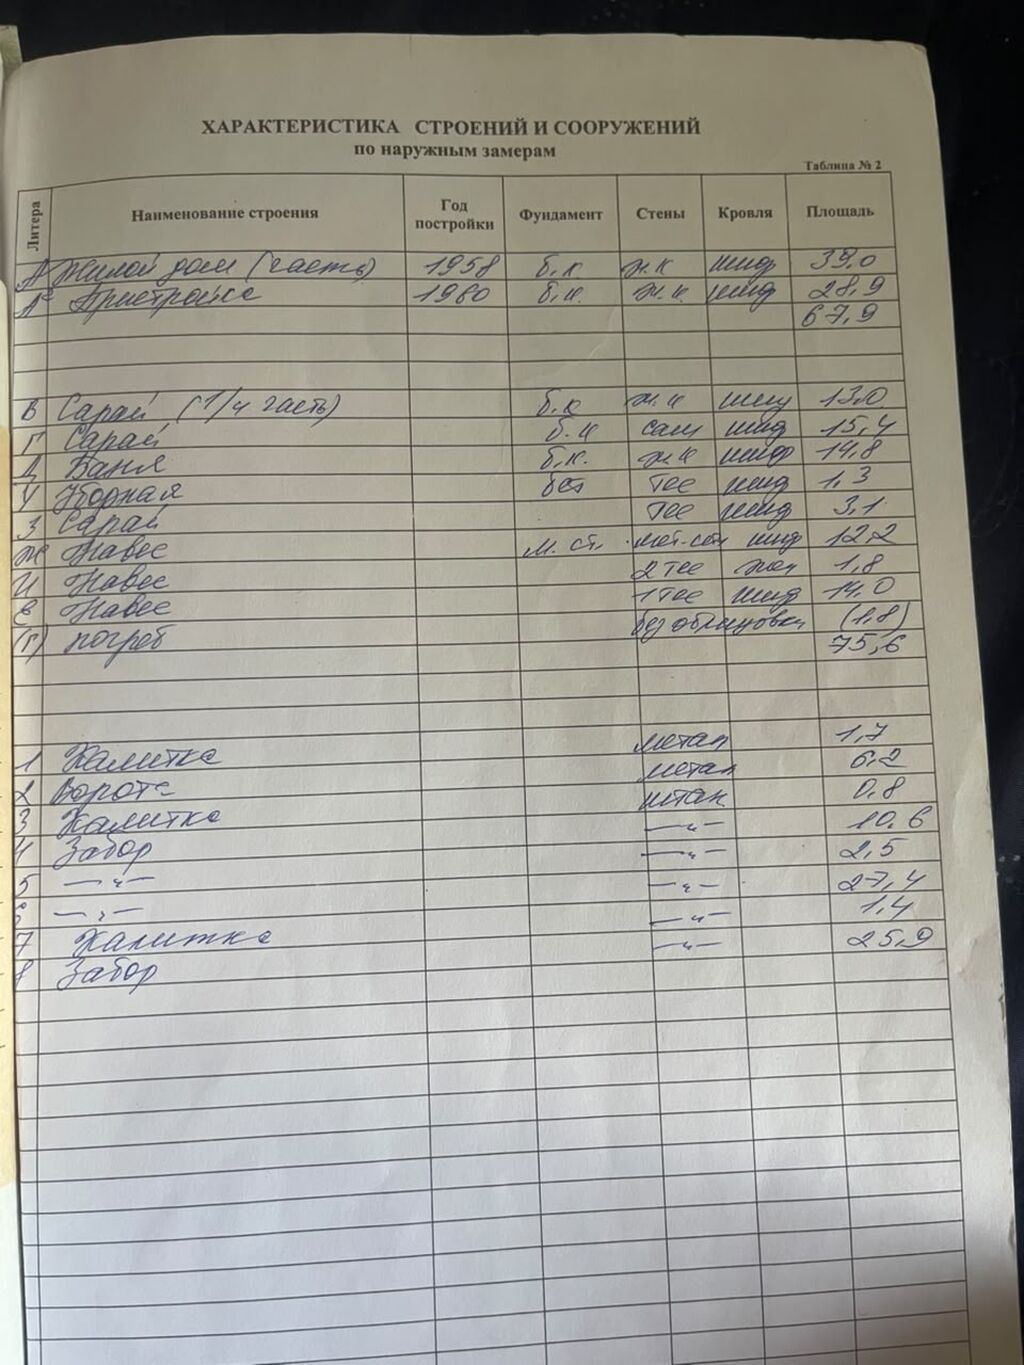 ХАРАКТЕРИСТИКА СТРОЕНИЙ И СООРУЖЕНИЙ
по наружным замерам
Таблица № 2
Литера Наименование строения Год постройки Фундамент Стены Кровля Площадь
А Жилой дом (часть) 1958 б.к ж.к шиф 39,0
Пристройка 1980 б.к. ж.к. шиф 28,9
67,9
В Сарай (1/4 часть) б.к ж.к шиф 13,0
Г Сарай б.к сам шиф 15,4
Д Баня б.к. ж.к шиф 14,8
У Уборная без тес шиф 1,3
З Сарай тес шиф 3,1
Ж Навес м. ст. шиф 12,2
И Навес 2 тес 1,8
Е Навес 1 тес шиф 14,0
(Г) погреб без облицовки (1,8)
75,6
1 Калитка метал 1,7
2 Ворота метал 6,2
3 Калитка штак 0,8
4 Забор —"— 10,6
5 —"— —"— 2,5
6 —"— —"— 27,4
7 Калитка —"— 1,4
8 Забор —"— 25,9